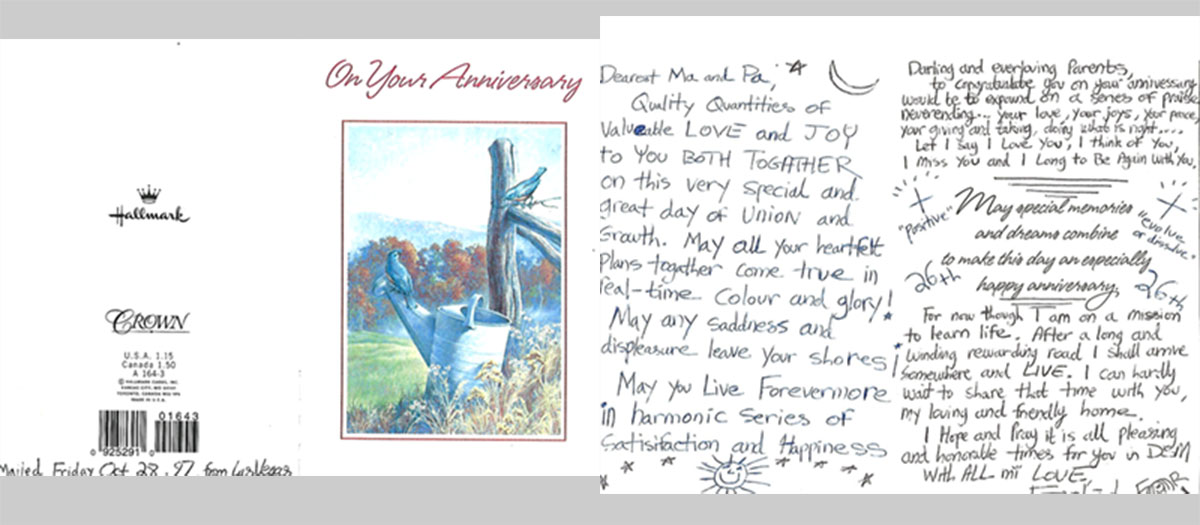 On Your Anniversary
Hallmark
CROWN
U.S.A. 1.15
Canada 1.50
A 164-3
© HALLMARK CARDS, INC.
KANSAS CITY, MO 64141
TORONTO, CANADA M2J 1P6
MADE IN U.S.A.
01643
0 925291 0
Mailed Friday Oct 28, 97 from Las Vegas
Dearest Ma and Pa,
Quality Quantities of
Valueable LOVE and JOY
to YOU BOTH TOGATHER
on this very special and
great day of UNION and
Grouth. May all your heartfelt
Plans together come true in
real-time Colour and glory!
May any saddness and
displeasure leave your shores!
May you Live Forevermore
in harmonic series of
Satisifaction and Happiness
Darling and everloving Parents,
to congratulate you on your anniversary
would be to expound on a series of praise
neverending... your love, your joys, your peace,
your giving and taking, doing what is right....
Let I say I Love You, I think of You,
I miss You and I Long to Be Again with You.
"Positive"
"evolve
or dissolve"
May special memories
and dreams combine
to make this day an especially
happy anniversary.
26th
26th
For now though I am on a mission
to learn life. After a long and
winding rewarding road I shall arrive
Somewhere and LIVE. I can hardly
wait to share that time with you,
my loving and friendly home.
I Hope and Pray it is all pleasing
and honorable times for you in DesM
With ALL mi LOVE,